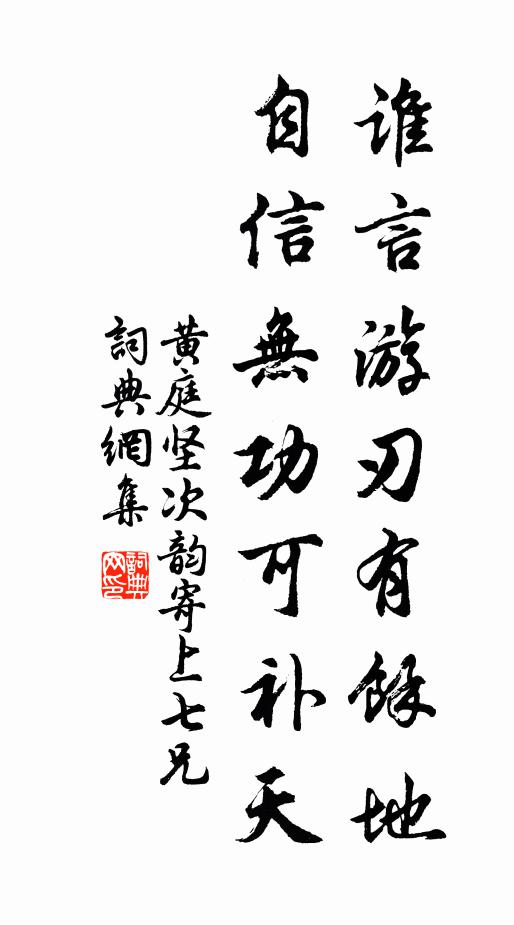 谁言游刃有餘地
自信無功可补天
黄庭坚次韵寄上七兄
詞典網集
詞典网印